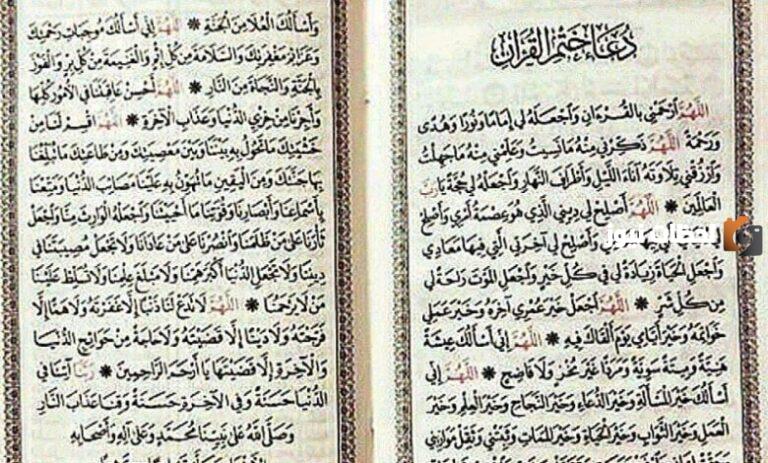 دُعَاءُ خَتْمِ القُرْآن
اللَّهُمَّ ارْحَمْنِي بِالقُرْءَانِ وَاجْعَلْهُ لِي إِمَامًا وَنُورًا وَهُدًى
وَرَحْمَةً اللَّهُمَّ ذَكِّرْنِي مِنْهُ مَانَسِيتُ وَعَلِّمْنِي مِنْهُ مَاجَهِلْتُ
وَارْزُقْنِي تِلَاوَتَهُ آنَاءَ اللَّيْلِ وَأَطْرَافَ النَّهَارِ وَاجْعَلْهُ لِي حُجَّةً يَارَبَّ
العَالَمِينَ * اللَّهُمَّ أَصْلِحْ لِي دِينِي الَّذِي هُوَعِصْمَةُ أَمْرِي وَأَصْلِحْ
فِيهَا مَعَاشِي وَأَصْلِحْ لِي آخِرَتِي الَّتِي فِيهَا مَعَادِي
وَاجْعَلِ الحَيَاةَ زِيَادَةً لِي فِي كُلِّ خَيْرٍ وَاجْعَلِ المَوْتَ رَاحَةً لِي
مِن كُلِّ شَرٍّ * اللَّهُمَّ اجْعَلْ خَيْرَ عُمْرِي آخِرَهُ وَخَيْرَ عَمَلِي
خَوَاتِمَهُ وَخَيْرَ أَيَّامِي يَوْمَ أَلْقَاكَ فِيهِ * اللَّهُمَّ إِنِّي أَسْأَلُكَ عِيشَةً
هَنِيَّةً وَمِيتَةً سَوِيَّةً وَمَرَدًّا غَيْرَ مُخْزٍ وَلَا فَاضِحٍ * اللَّهُمَّ إِنِّي
أَسْأَلُكَ خَيْرَ المَسْأَلَةِ وَخَيْرَ الدُّعَاءِ وَخَيْرَ النَّجَاحِ وَخَيْرَ العِلْمِ وَخَيْرَ
العَمَلِ وَخَيْرَ الثَّوَابِ وَخَيْرَ الحَيَاةِ وَخَيْرَ المَمَاتِ وَثَبِّتْنِي وَثَقِّلْ مَوَازِينِي
وَأَسْأَلُكَ العُلَا مِنَ الجَنَّةِ * اللَّهُمَّ إِنِّي أَسْأَلُكَ مُوجِبَاتِ رَحْمَتِكَ
وَعَزَائِمَ مَغْفِرَتِكَ وَالسَّلَامَةَ مِن كُلِّ إِثْمٍ وَالغَنِيمَةَ مِن كُلِّ بِرٍّ وَالفَوْزَ
بِالجَنَّةِ وَالنَّجَاةَ مِنَ النَّارِ * اللَّهُمَّ أَحْسِنْ عَاقِبَتَنَا فِي الأُمُورِ كُلِّهَا
وَأَجِرْنَا مِنْ خِزْيِ الدُّنْيَا وَعَذَابِ الآخِرَةِ * اللَّهُمَّ اقْسِمْ لَنَا مِنْ
خَشْيَتِكَ مَاتَحُولُ بِهِ بَيْنَنَا وَبَيْنَ مَعْصِيَتِكَ وَمِنْ طَاعَتِكَ مَاتُبَلِّغُنَا
بِهَا جَنَّتَكَ وَمِنَ اليَقِينِ مَاتُهَوِّنُ بِهِ عَلَيْنَا مَصَائِبَ الدُّنْيَا وَمَتِّعْنَا
بِأَسْمَاعِنَا وَأَبْصَارِنَا وَقُوَّتِنَا مَا أَحْيَيْتَنَا وَاجْعَلْهُ الوَارِثَ مِنَّا وَاجْعَلْ
ثَأْرَنَا عَلَى مَنْ ظَلَمَنَا وَانْصُرْنَا عَلَى مَنْ عَادَانَا وَلَا تَجْعَلْ مُصِيبَتَنَا فِي
دِينِنَا وَلَا تَجْعَلِ الدُّنْيَا أَكْبَرَ هَمِّنَا وَلَا مَبْلَغَ عِلْمِنَا وَلَا تُسَلِّطْ عَلَيْنَا
مَنْ لَا يَرْحَمُنَا * اللَّهُمَّ لَا تَدَعْ لَنَا ذَنْبًا إِلَّا غَفَرْتَهُ وَلَا هَمًّا إِلَّا
فَرَّجْتَهُ وَلَا دَيْنًا إِلَّا قَضَيْتَهُ وَلَا حَاجَةً مِنْ حَوَائِجِ الدُّنْيَا
وَالآخِرَةِ إِلَّا قَضَيْتَهَا يَا أَرْحَمَ الرَّاحِمِينَ * رَبَّنَا آتِنَا فِي
الدُّنْيَا حَسَنَةً وَفِي الآخِرَةِ حَسَنَةً وَقِنَا عَذَابَ النَّارِ
وَصَلَّى اللَّهُ عَلَى نَبِيِّنَا مُحَمَّدٍ وَعَلَى آلِهِ وَأَصْحَابِهِ
نيوز